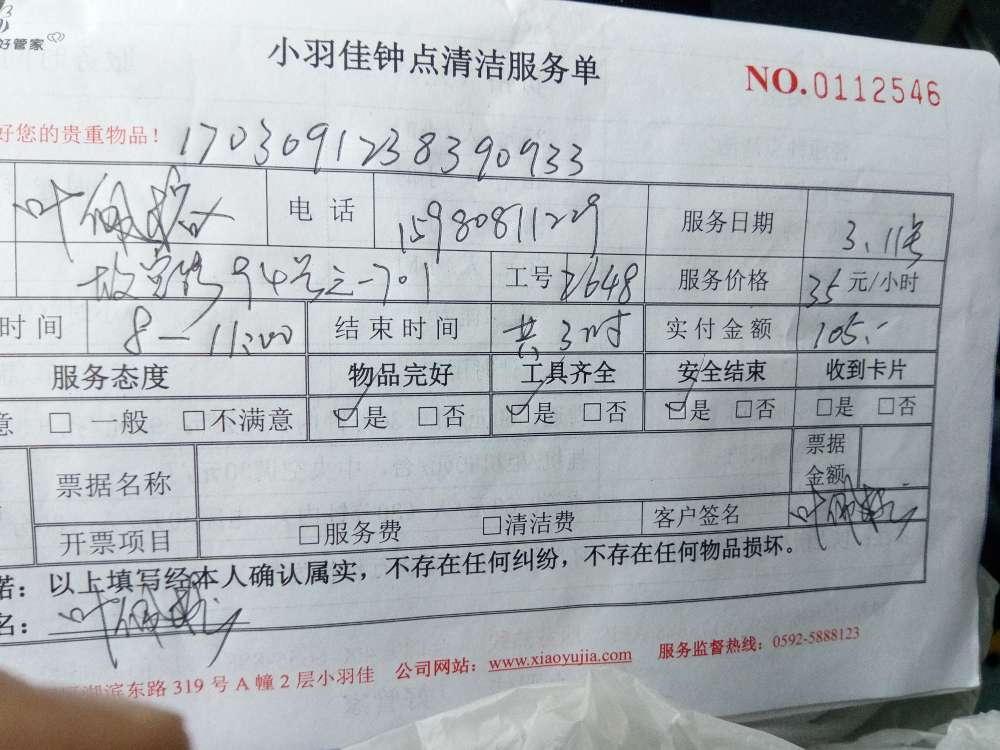 好管家
小羽佳钟点清洁服务单
NO.0112546
好您的贵重物品！ 1703091238390933
叶 电话 15980811229 服务日期 3.11号
94号之一701 工号 2648 服务价格 35元/小时
时间 8—11:00 结束时间 共3时 实付金额 105.
服务态度 物品完好 工具齐全 安全结束 收到卡片
意 □ 一般 □不满意 ☑是 □否 ☑是 □否 ☑是 □否 □是 □否
票据名称 票据金额
开票项目 □服务费 □清洁费 客户签名 叶
诺：以上填写经本人确认属实，不存在任何纠纷，不存在任何物品损坏。
名： 叶
湖滨东路319号A幢2层小羽佳 公司网站：www.xiaoyujia.com 服务监督热线：0592-5888123